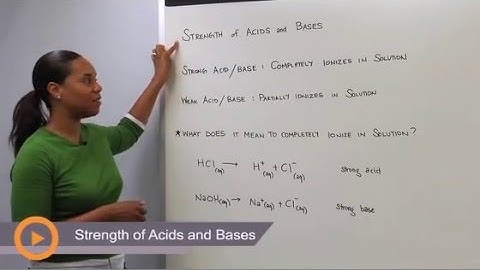 STRENGTH of ACIDS and BASES
STRONG ACID/BASE : COMPLETELY IONIZES IN SOLUTION
WEAK ACID/BASE : PARTIALLY IONIZES IN SOLUTION
* WHAT DOES IT MEAN TO COMPLETELY IONIZE IN SOLUTION?
HCl(aq) → H⁺(aq) + Cl⁻(aq) strong acid
NaOH(aq) → Na⁺(aq) + Cl⁻(aq) strong base
Strength of Acids and Bases